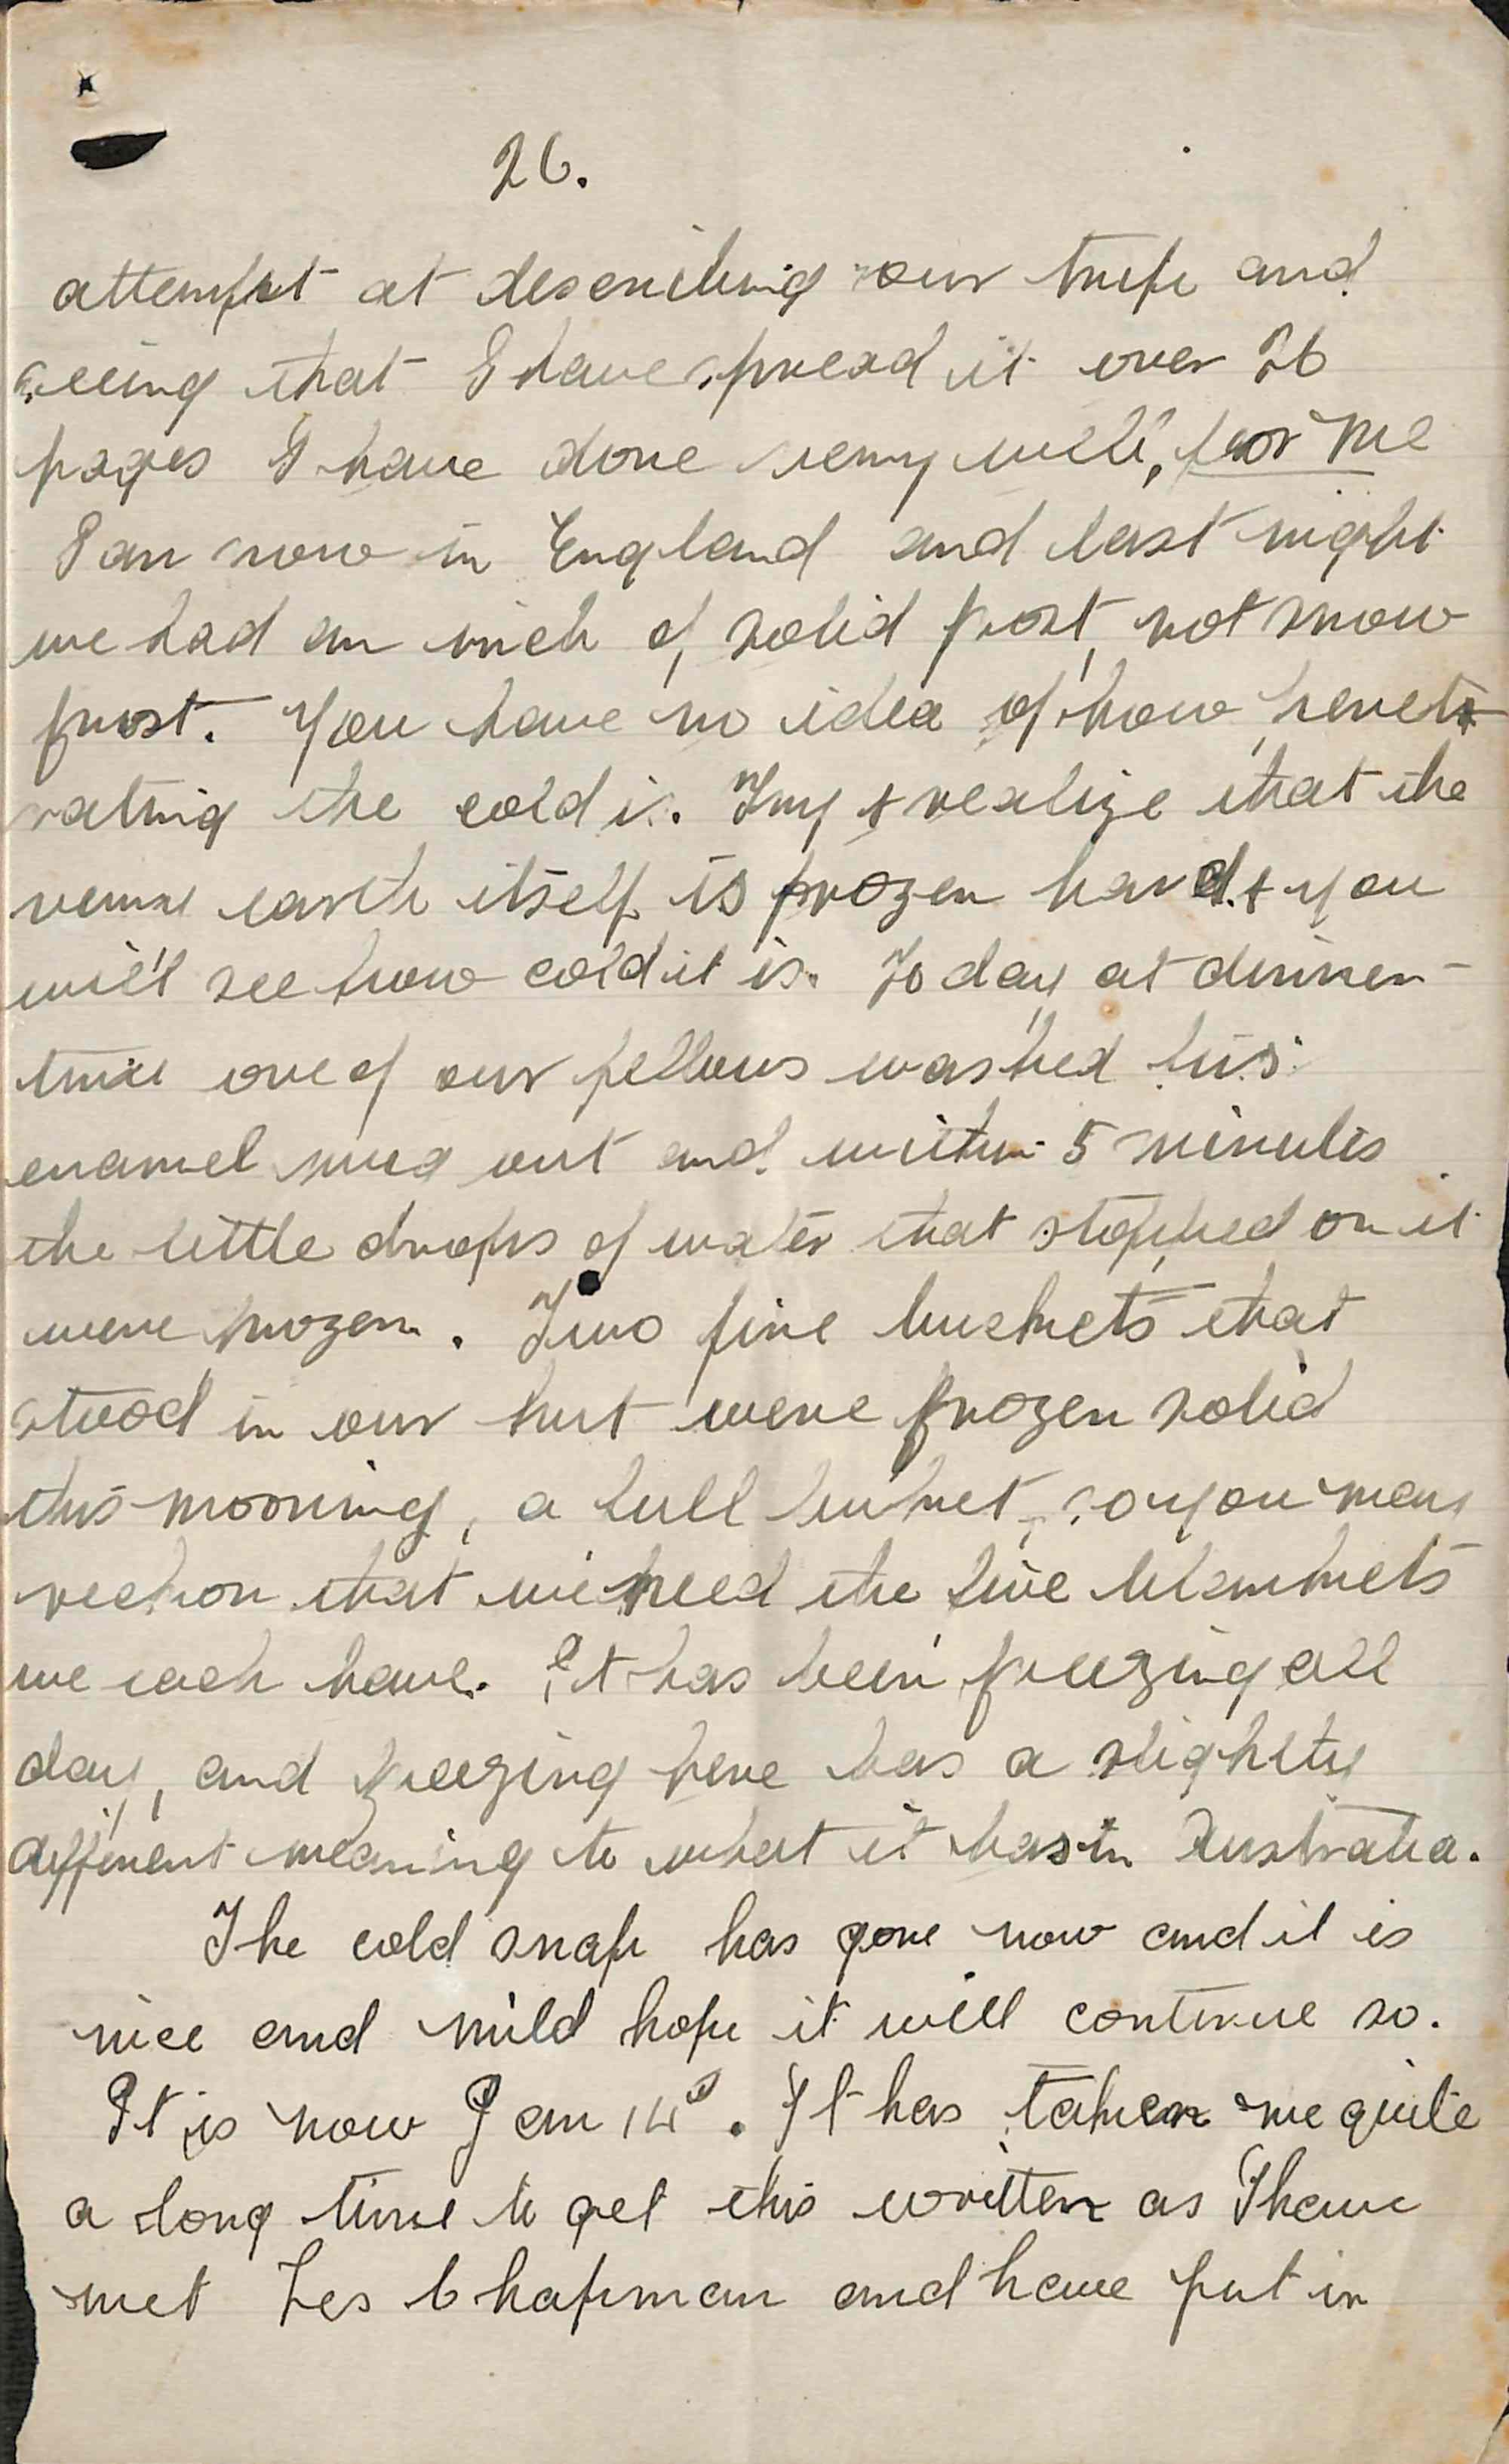 26.
attempt at describing our trip and
seeing that I have spread it over 26
pages I have done very well, for me
I am now in England and last night
we had an inch of solid frost, not snow
frost. You have no idea of how penet-
rating the cold is. Try & realize that the
very earth itself is frozen hard & you
will see how cold it is. To day at dinner-
time one of our fellows washed his
enamel mug out and within 5 minutes
the little drops of water that stopped on it
were frozen. Two fire buckets that
stood in our hut were frozen solid
this morning, a full bucket, so you may
reckon that we need the five blankets
we each have. It has been freezing all
day, and freezing here has a slightly
different meaning to what it has in Australia.
The cold snap has gone now and it is
nice and mild hope it will continue so.
It is now Jan 14th. It has taken me quite
a long time to get this written as I have
met Les Chapman and have put in